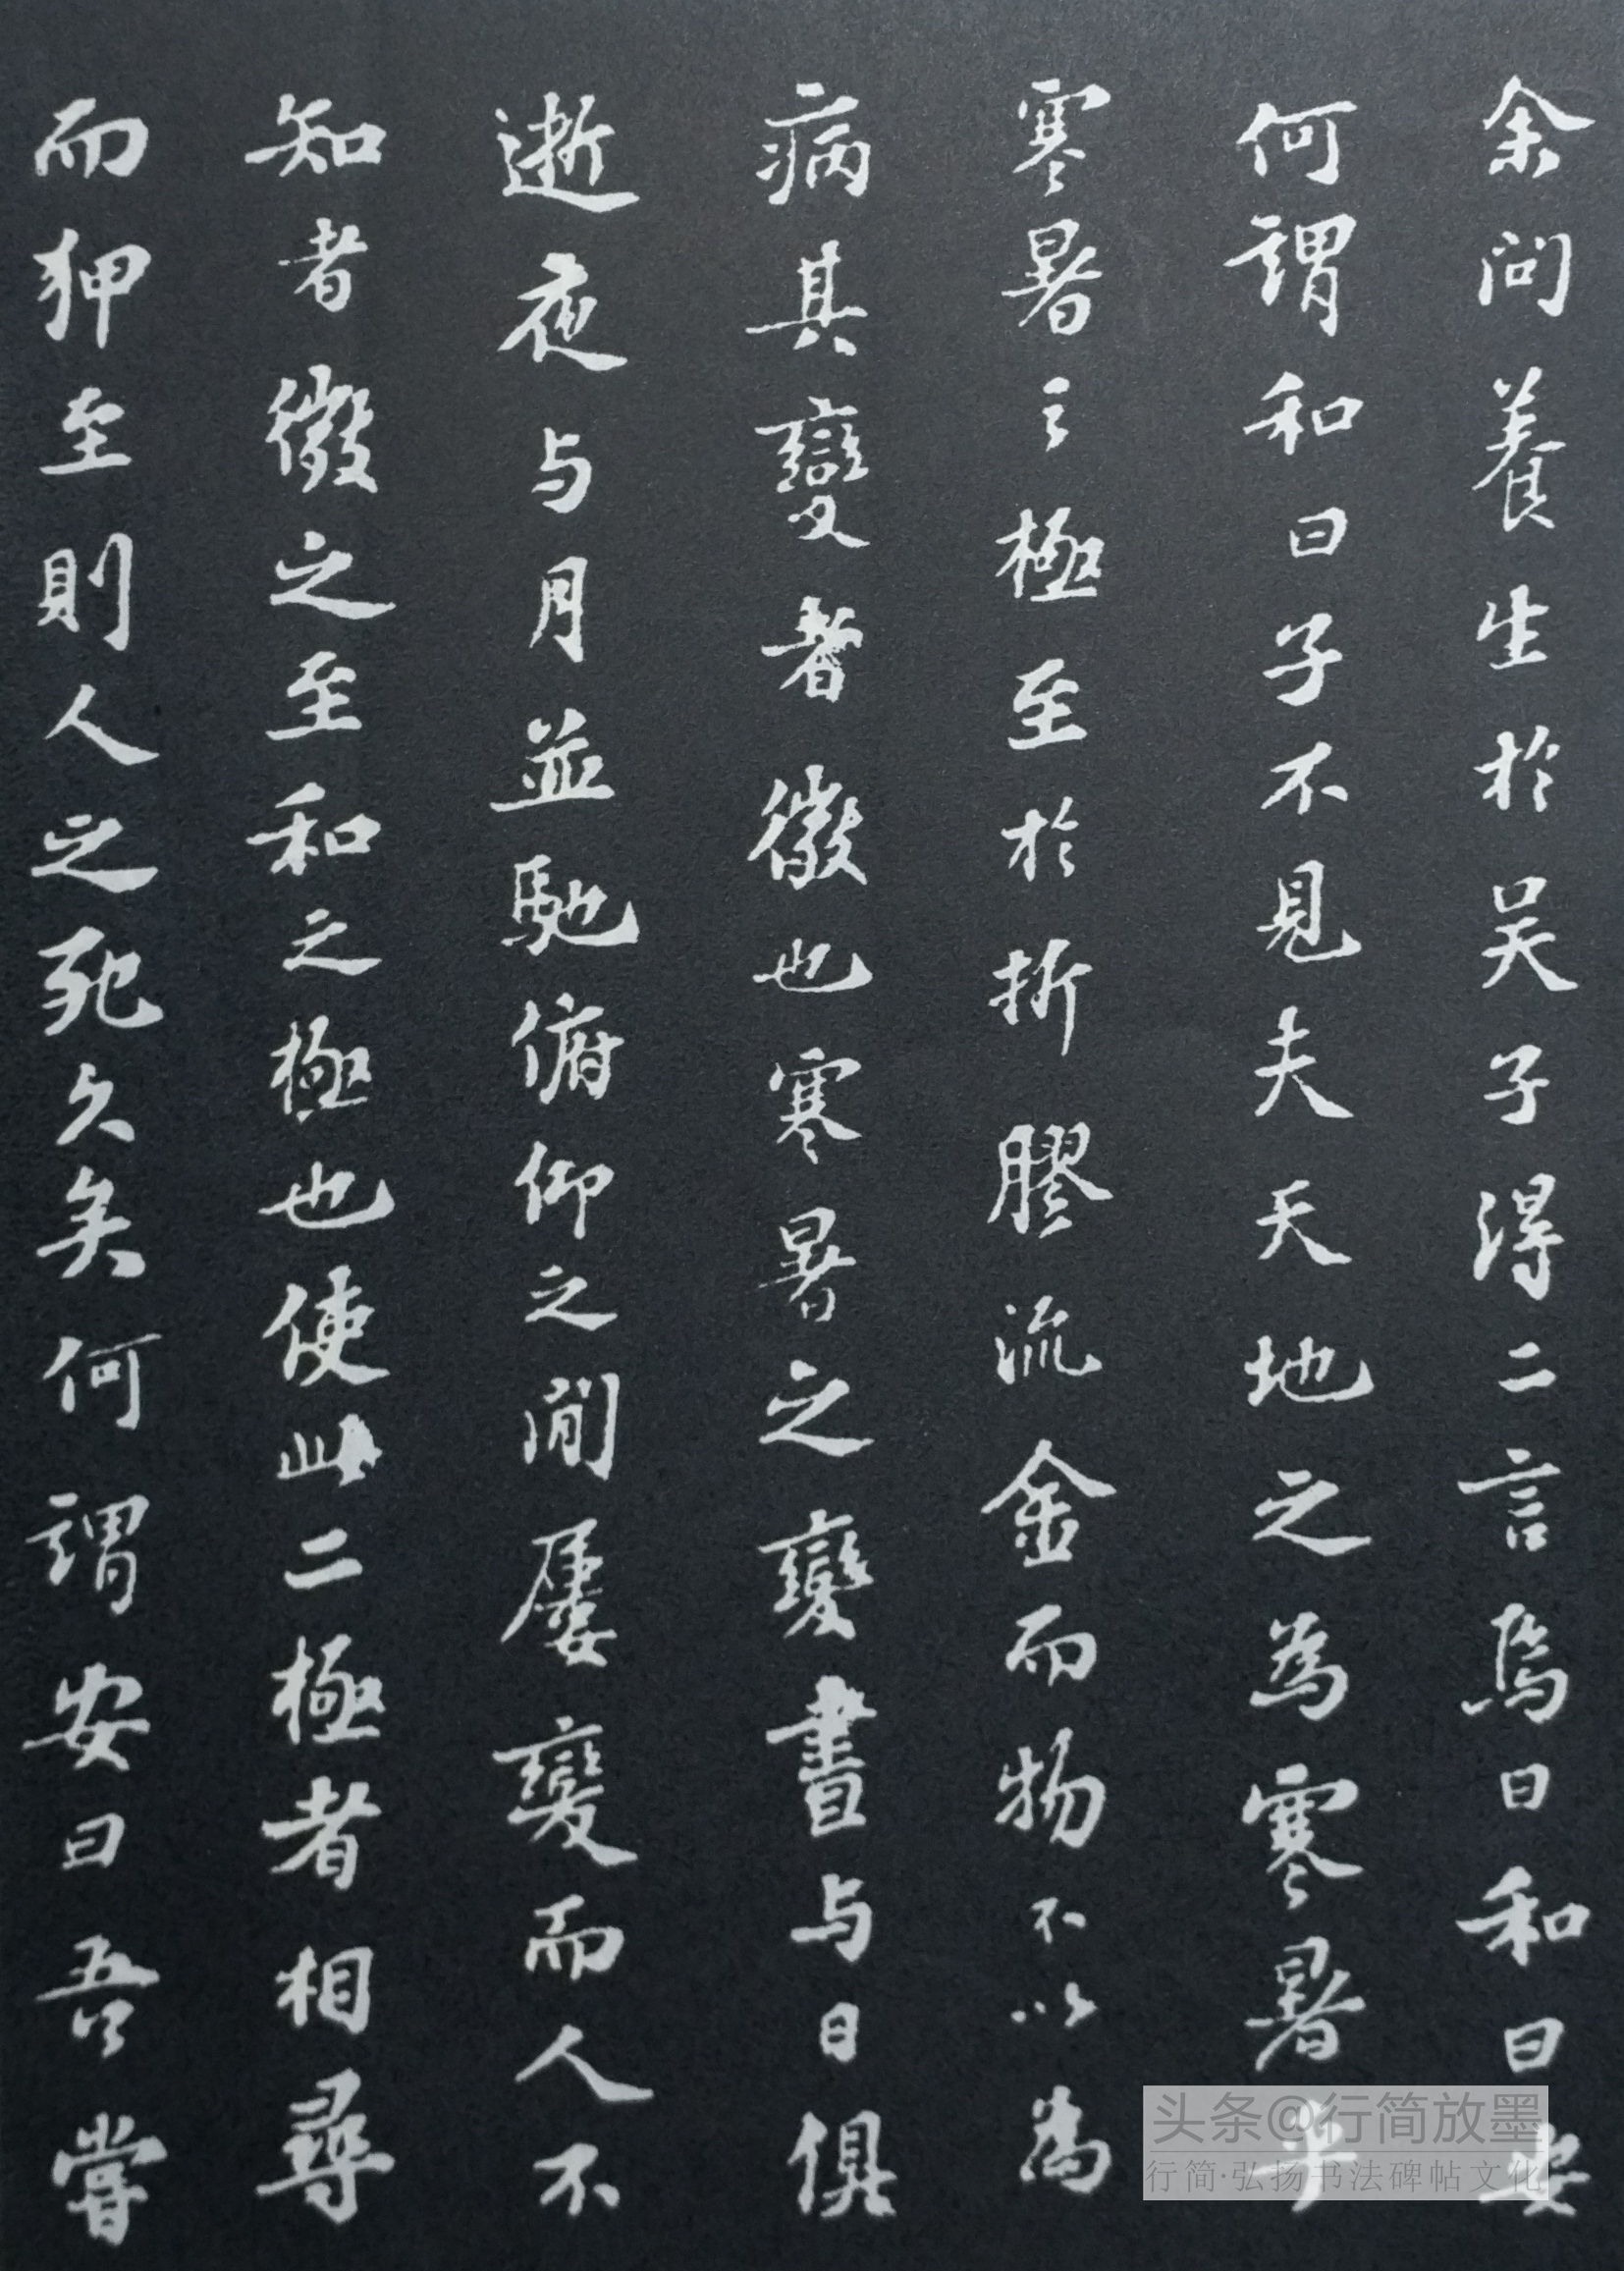 余问養生於吴子得二言焉曰和曰安
何謂和曰子不見夫天地之為寒暑乎
寒暑之極至於折膠流金而物不以為
病其變者微也寒暑之變晝与日俱
逝夜与月並馳俯仰之間屢變而人不
知者微之至和之極也使此二極者相尋
而狎至則人之死久矣何謂安曰吾嘗
头条@行简放墨
行简·弘扬书法碑帖文化